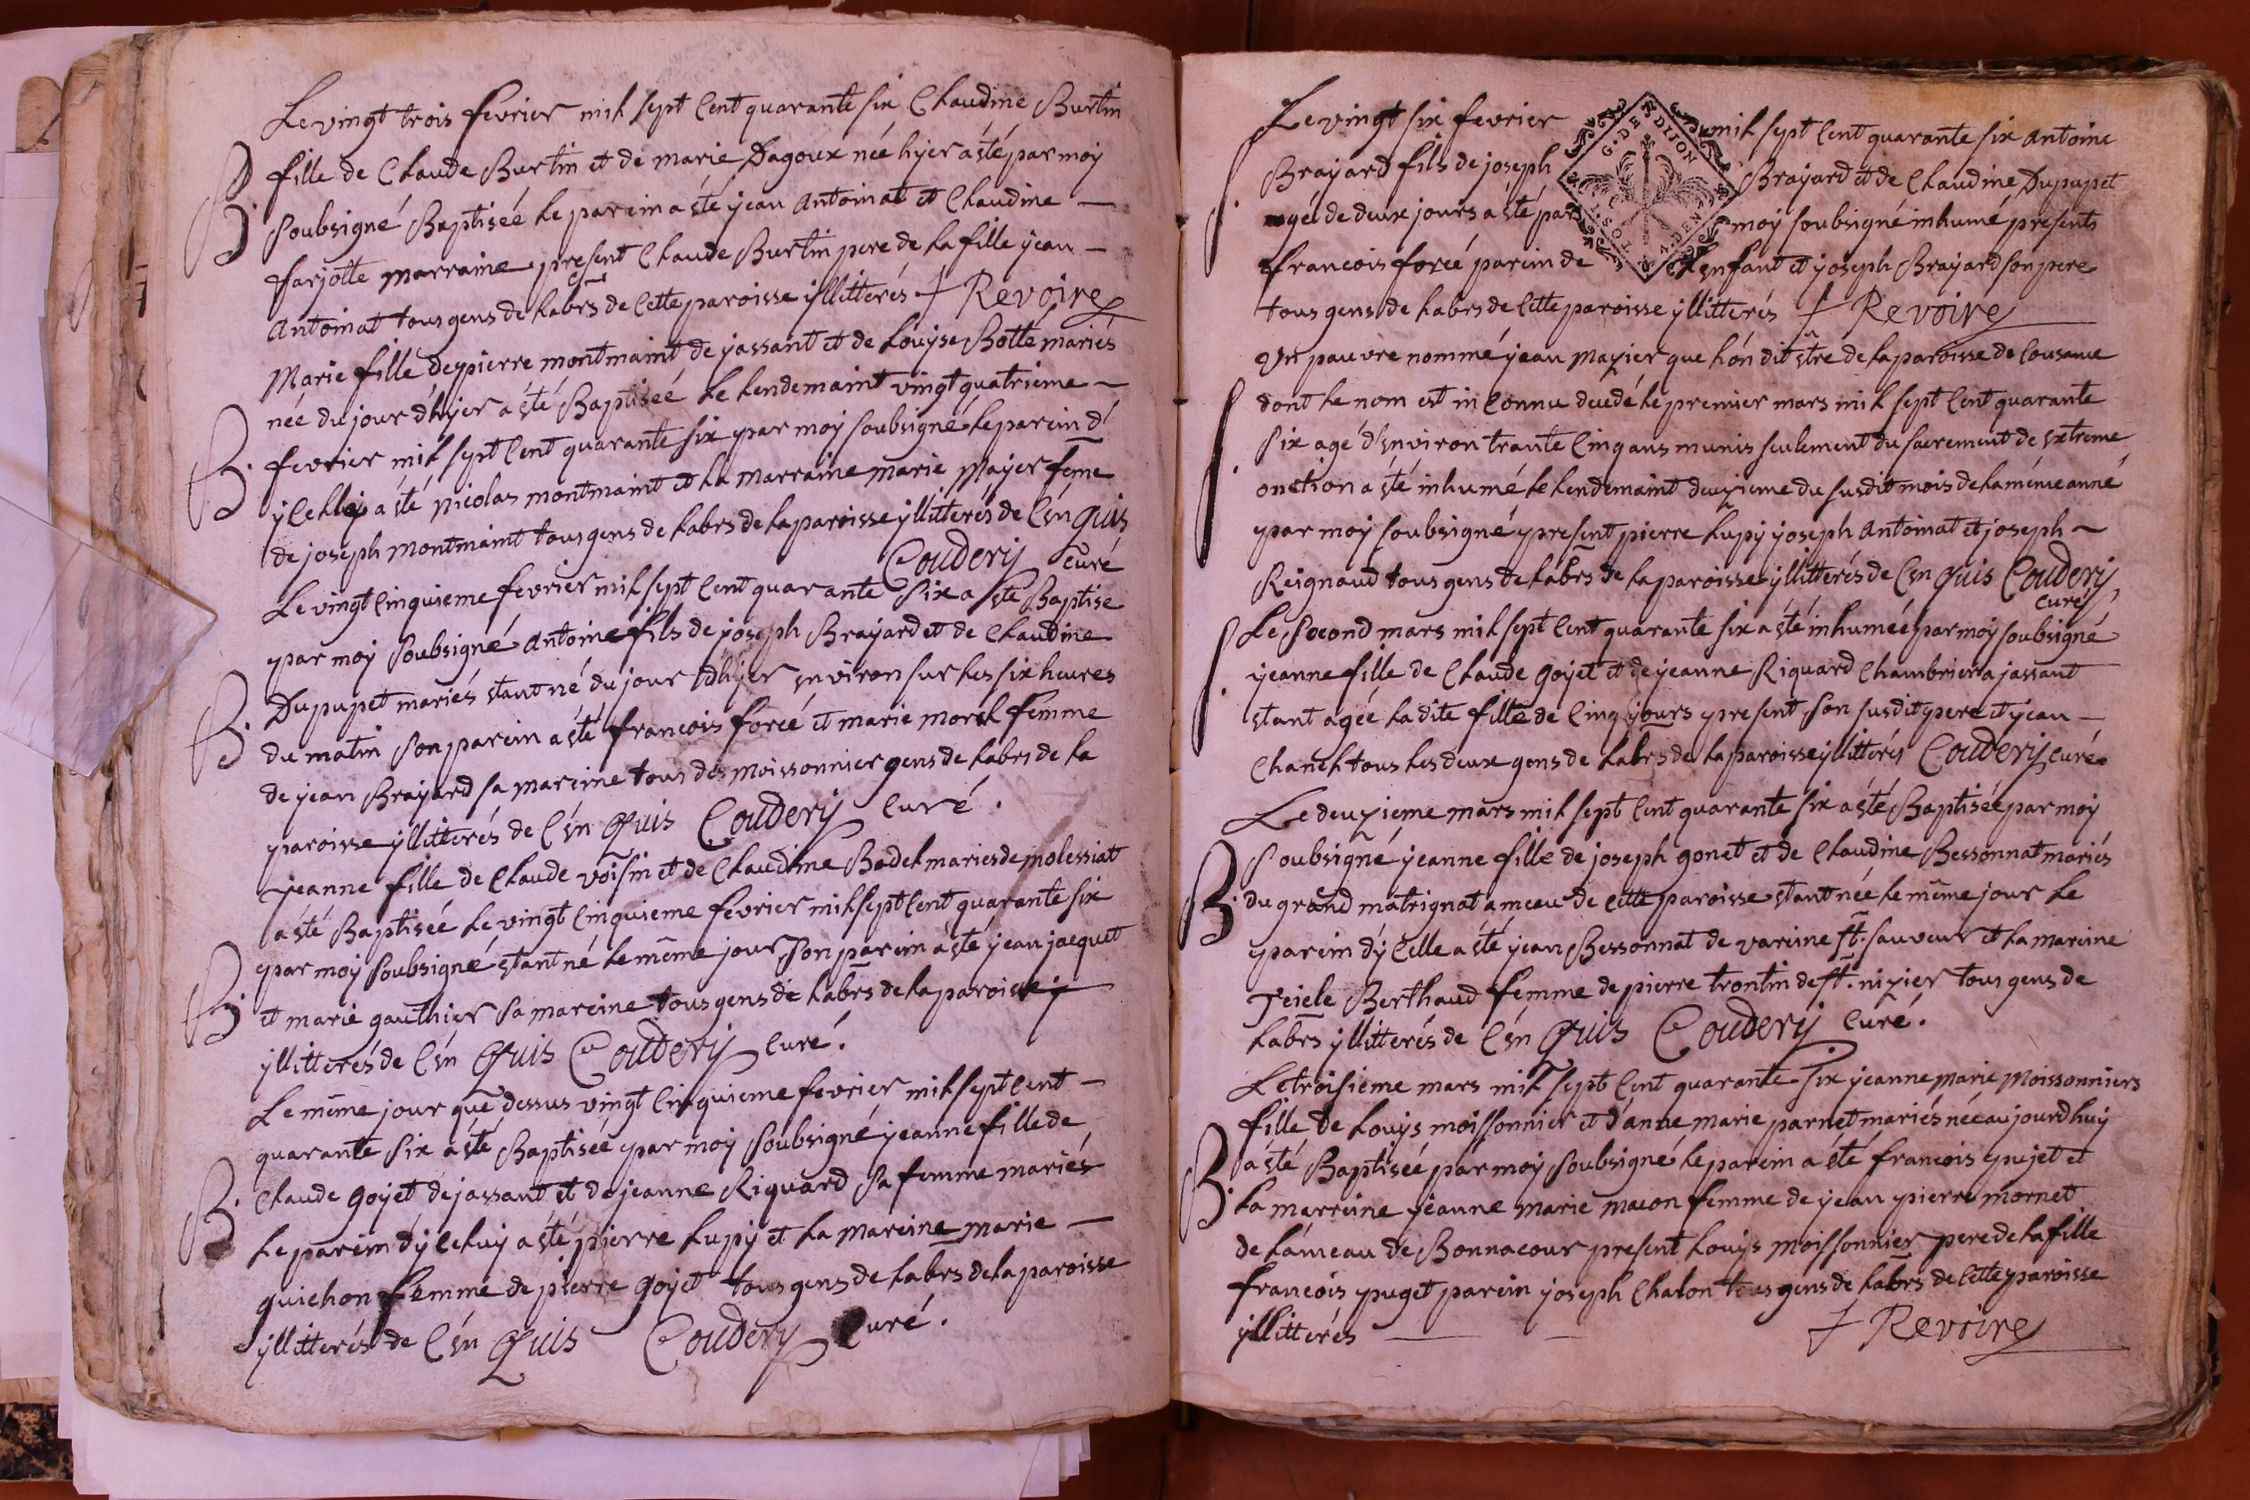 Le vingt trois fevrier mil sept cent quarante six Claudine Burtin
B. fille de Claude Burtin et de marie Dagoux née hyer a été par moy
soubsigné Baptisée le parein a été jean Antoinat et Claudine —
farjotte marraine present Claude Burtin pere de la fille jean —
Antoinat tous gens de labrs de cette paroisse yllitterés + Revoire
Marie fille de pierre montmaint de jassant et de Louyse Botte mariés
née du jour d'hyer a été Baptiseé le lendemaint vingt quatrieme —
B. fevrier mil sept cent quarante six par moy soubsigné le parein d'
ycelle a été nicolas montmaint et la marraine marie Mayer feme
de joseph montmaint tous gens de labrs de la paroisse yllitterés de c'en quis
Coudery curé
Le vingt cinquieme fevrier mil sept cent quarante six a eté Baptise
par moy soubsigné antoine fils de joseph Brayard et de Claudine
B. Dupupet mariés etant né du jour d'hyer environ sur les six heures
du matin son parein a été francois forcé et marie morel femme
de jean Brayard sa mareine tous des moissonnier gens de labrs de la
paroisse yllitterés de c'en quis Coudery curé.
jeanne fille de Claude voisin et de Claudine Badel maries de molessiat
a été Baptisée le vingt cinquieme fevrier mil sept cent quarante six
B. par moy soubsigné etant né le même jour son parein a été jean jacquet
et marie gauthier sa mareine tous gens de labrs de la paroisse
yllitterés de c'en quis Coudery curé.
Le même jour que dessus vingt cinquieme fevrier mil sept cent —
quarante six a été Baptisée par moy soubsigné jeanne fille de
B. Claude goyet de jassant et de jeanne Riquard sa femme mariés
le parein d'yceluy a été pierre Lupy et la mareine marie —
guichon femme de pierre goyet tous gens de labrs de la paroisse
yllitterés de c'en quis Coudery curé.
Le vingt six fevrier mil sept cent quarante six antoine
S. Brayard fils de joseph Brayard et de Claudine Dupupet
agé de deux jours a été par moy soubsigné inhumé presents
francois forcé parein de l'enfant et joseph Brayard son pere
tous gens de labrs de cette paroisse yllitterés + Revoire
G. DE DIJON
Un pauvre nommé jean mazier que l'on dit etre de la paroisse de
dont le nom est inconnu decedé le premier mars mil sept cent quarante
S. six agé d'environ trante cinq ans munis seulement du sacrement de extreme
onction a été inhumé le lendemaint deuzieme du susdit mois de la même anné
par moy soubsigné present pierre Lupy joseph Antoinat et joseph —
Reignaud tous gens de labrs de la paroisse yllitterés de c'en quis Coudery
curé
S. Le second mars mil sept cent quarante six a été inhumeé par moy soubsigné
jeanne fille de Claude goyet et de jeanne Riquard Chambrier a jassant
etant agée la dite fille de cinq jours present son susdit pere et jean —
Chanel tous les deux gens de labrs de la paroisse yllitterés Coudery curé
Le deuzieme mars mil sept cent quarante six a été Baptisée par moy
soubsigné jeanne fille de joseph gonet et de Claudine Bessonnat mariés
B. du grand matrignat ameau de cette paroisse etant née le même jour le
parein d'ycelle a été jean Bessonnat de vareine st. sauveur et la mareine
Berthaud femme de pierre trontin de st. nizier tous gens de
labrs yllitterés de c'en quis Coudery curé.
Le troisieme mars mil sept cent quarante six jeanne marie moissonniers
fille de Louys moissonnier et d'anne marie parnet mariés née aujourdhuy
B. a été Baptiseé par moy soubsigné le parein a été francois pujet et
la marreine jeanne marie macon femme de jean pierre mornet
de lameau de Bonnacour present Louys moissonnier pere de la fille
francois puget parein joseph Chalon tous gens de labrs de cette paroisse
yllitterés — — + Revoire